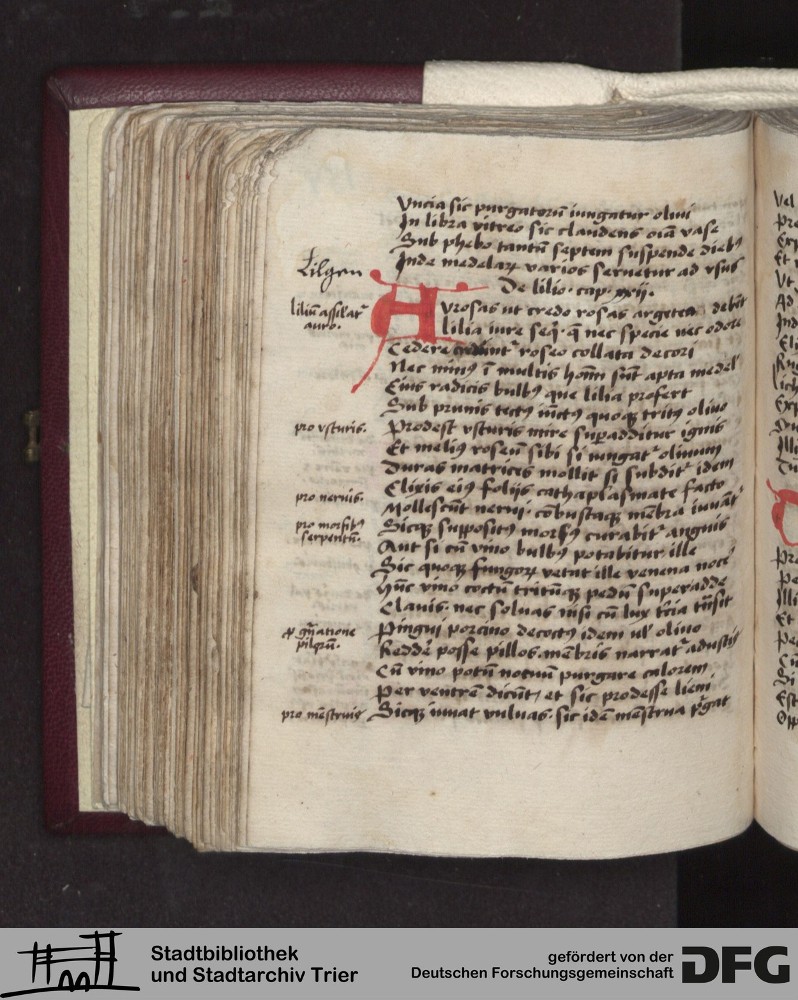 Vncia sic purgatoriū iungatur oliui
In libra vitreo sic claudens oīa vase
Sub phebo tantū septem suspende dieb9
Inde medelaꝝ varios seruetur ad vsus
Lilgen
De lilio · cap · xxij.
liliū assilať auro.
Aurosas ut credo rosas argētea debēt
lilia iure seq̄ · q̄ nec specie nec odore
Cedere roseo collata decori
Nec min9 ī multis hoīī sūt apta medel
Eius radicis bulb9 que lilia profert
Sub prunis tect9 iūct9 quoqꝫ trit9 oliuo
pro vsturis.
Prodest vsturis mire supadditur ignis
Et meli9 roseū sibi si iungať oliuum
Duras matrices mollit si subdiť idem
Elixis ei9 folijs cathaplasmate facto
pro neruis.
Mollescūt nerui cōbustaqꝫ mēbra iuuāť
pro morsib9 serpentū.
Sicqꝫ supposit9 mors9 curabiť anguis
Aut si cū vino bulb9 potabitur ille
Sic quoqꝫ fungoꝝ vetat ille venena nocē
Hūc vino coctū tritūqꝫ pedū superadde
Clauis nec soluas nisi cū lux t̄cia t̄nsit
gn̄atione pilorū.
Pingui porcino decoct9 idem ul' oliuo
Redde posse pillos mēbris narrať adustis
Cū vino potū notuū purgare calorem
Per ventrē dicūt, et sic prodesse lieni
pro mēstruis
Sicqꝫ iuuat vuluas · sic idē mēstrua p̄gat
Stadtbibliothek
und Stadtarchiv Trier
gefördert von der
Deutschen Forschungsgemeinschaft
DFG